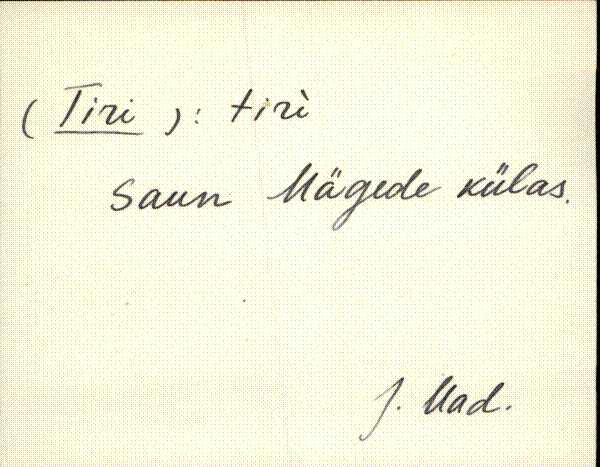 (Tiri): tiri̇̀
Saun Mägede külas.
J. Mad.